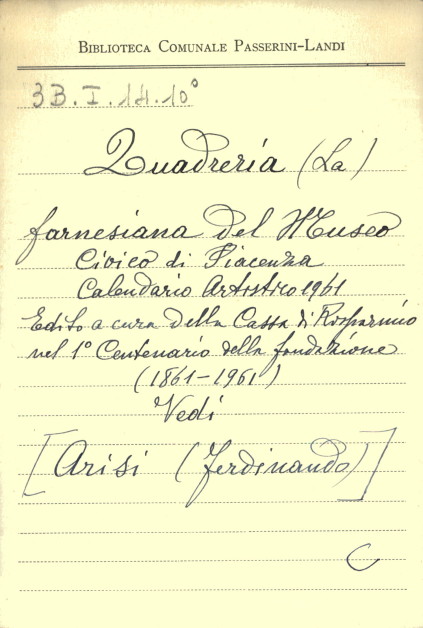 BIBLIOTECA COMUNALE PASSERINI-LANDI
3B.I.14.10°
Quadreria (La)
farnesiana del Museo
Civico di Piacenza
Calendario Artistico 1961
Edito a cura della Cassa di Risparmio
nel 1° Centenario della fondazione
(1861-1961)
Vedi
[Arisi (Ferdinando)]
C